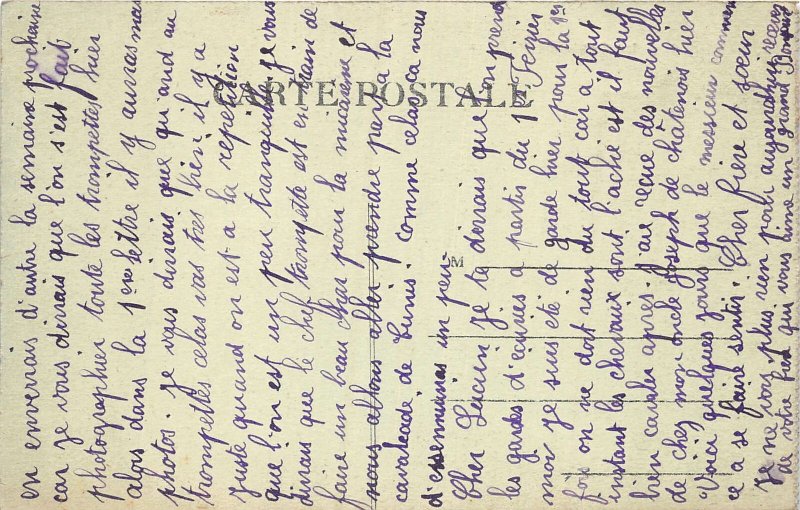 CARTE POSTALE
en enverrais d'autre la semaine prochaine
car je vous dirais que l'on s'est fait
photographier toute les trompettes hier
alors dans la 1re lettre il y auras mes
photos. Je vous dirais que quand au
trompettes celas vas tres bien il y a
juste quand on est a la repetition
que l'on est un peu tranquille je vous
dirais que le chef trompette est en train de
faire un beau char pour la micareme et
nous allons aller prendre part a la
cavalcade de Tunis. Comme celas ca nous
d'essennuieras un peu
Cher Lucien je te dirrais que l'on prend
les gardes d'écuries a partir du 1er Fevrier
moi je suis été de garde hier pour la 1re
fois on ne doit rien du tout car a tout
instant les chevaux sont l'aché est il faut
bien cavaler apres. J'ai recue des nouvelles
de chez mon oncle Joseph de châtenois hier
Voici quelques jours que le messieur commen
ce a se faire sentir. Cher frère et soeur
Je ne vois plus rien parli aujourd'hui recevez
de votre fred qui vous aime un grand Bonjour
M